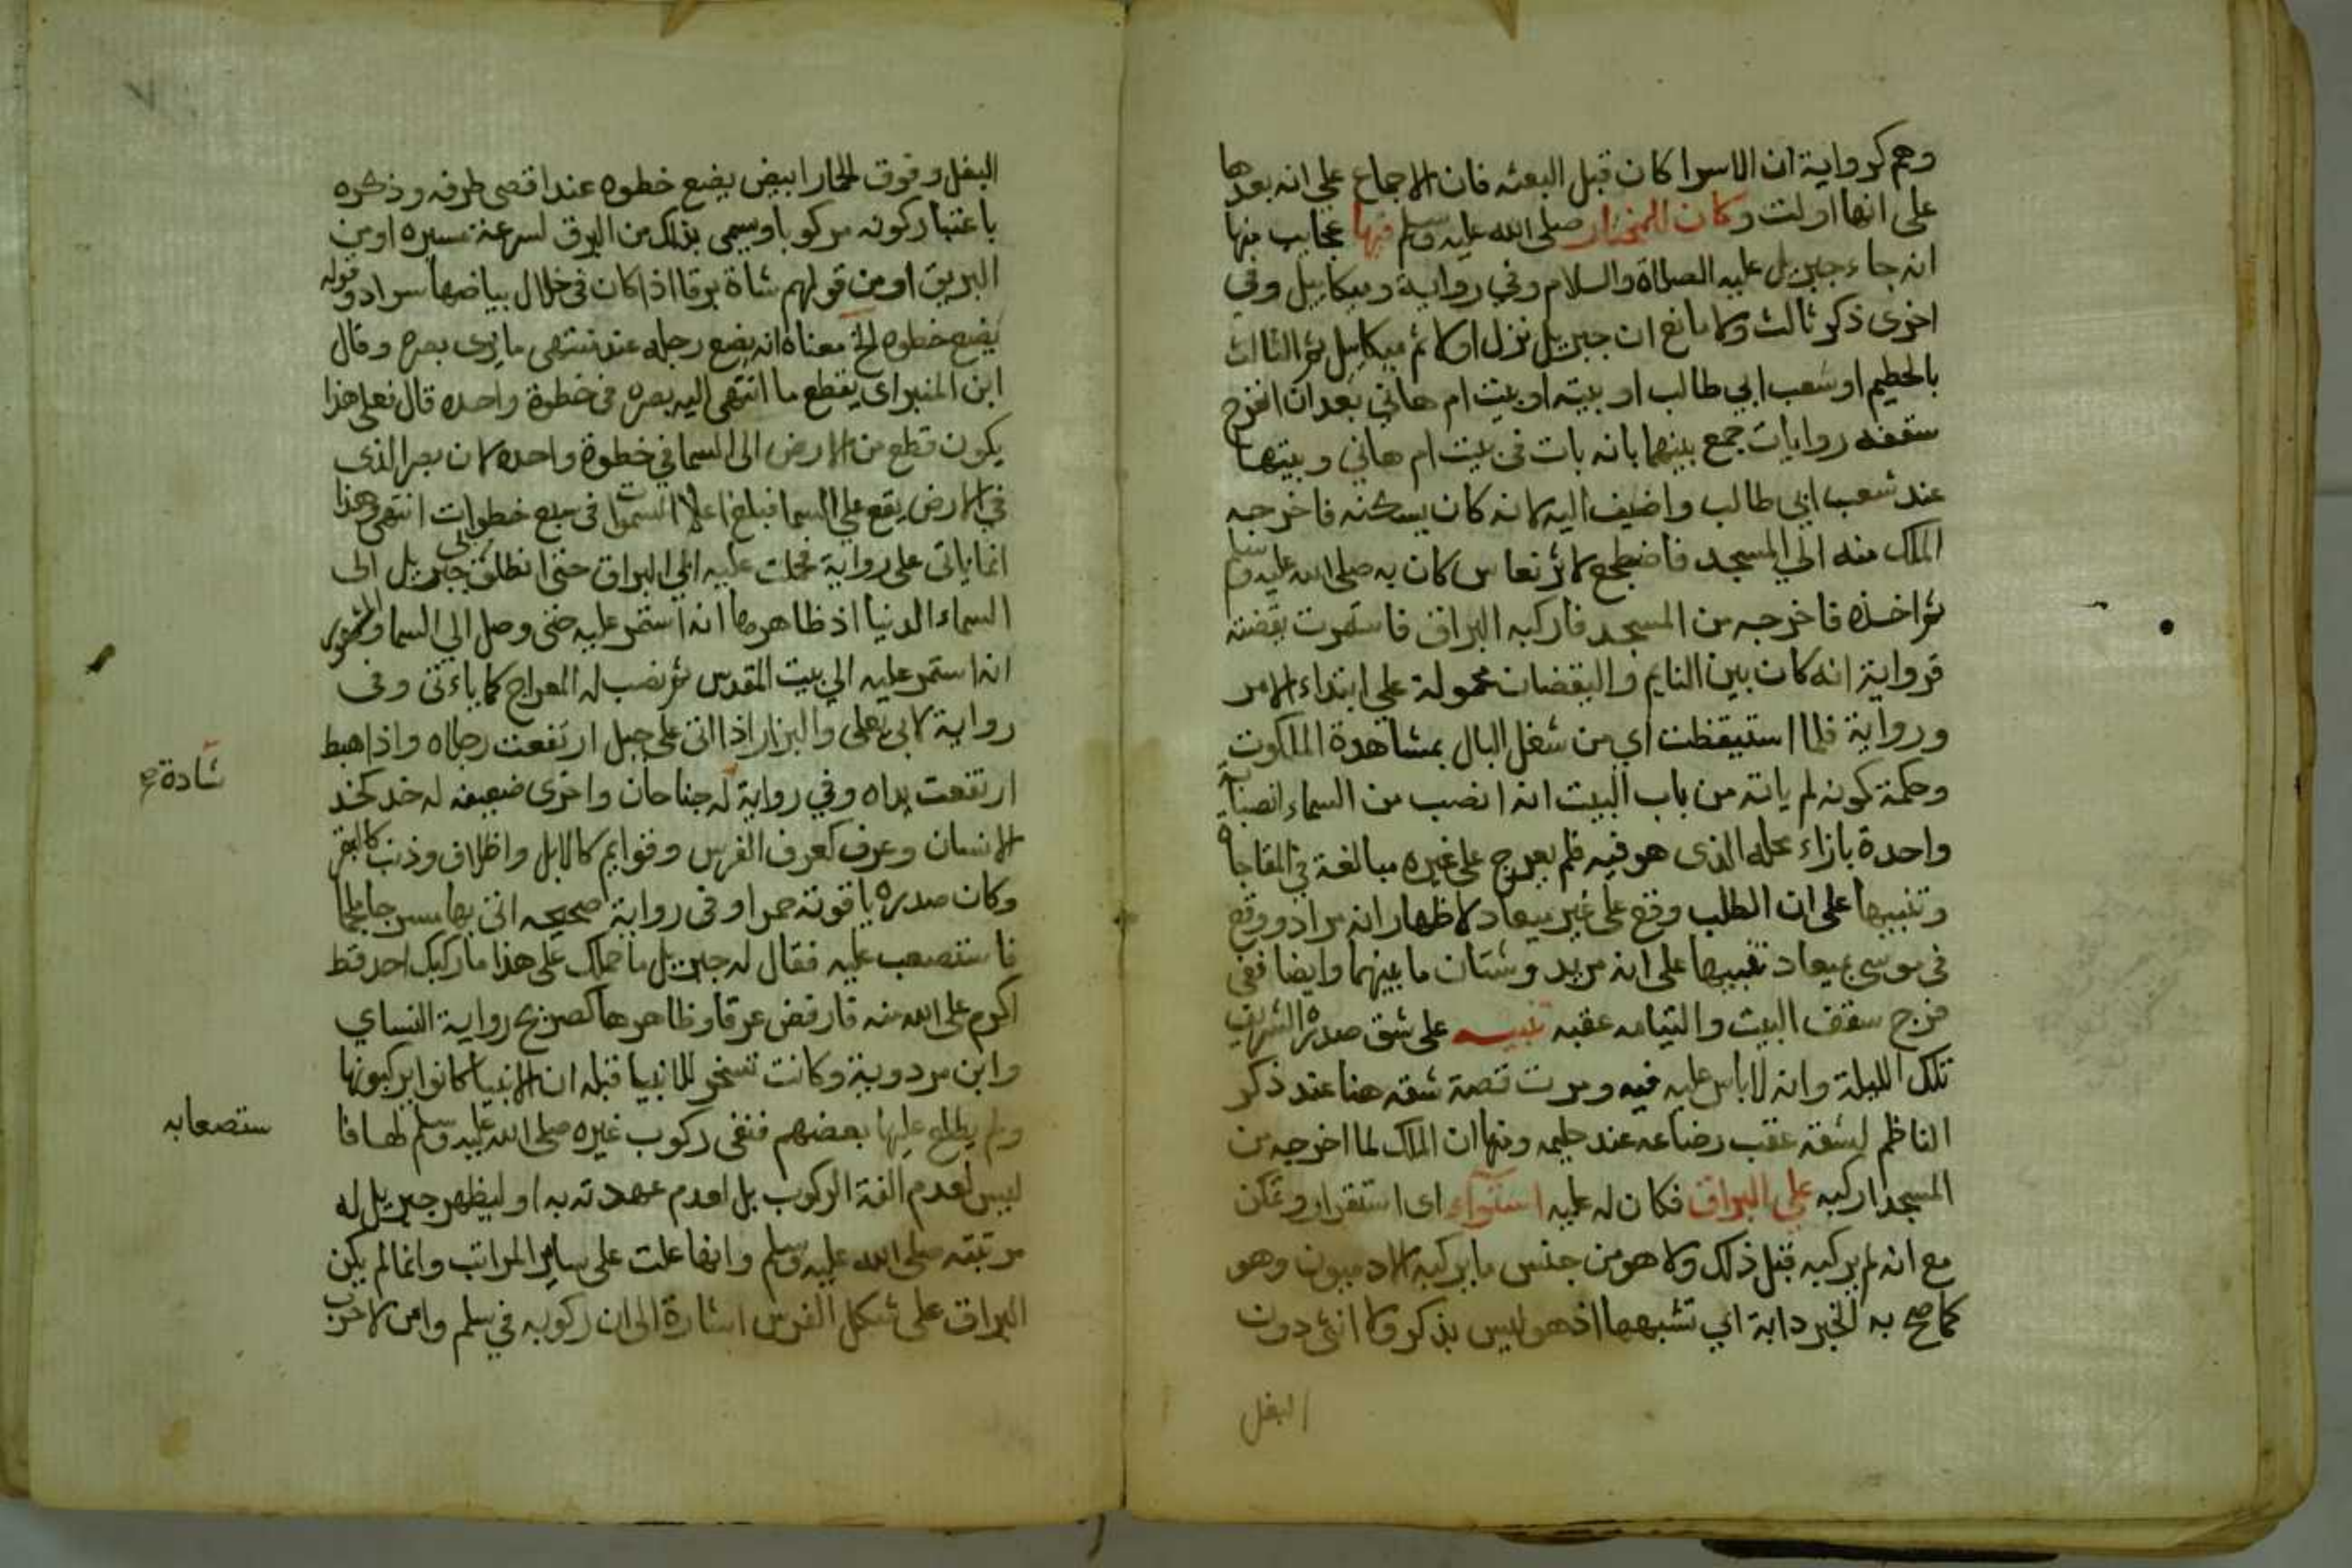 وهم كرواية ان الاسرا كان قبل البعثه فان الاجماع علي انه بعدها
على انها اولت وكان للمختار صلى الله عليه وسلم فيها عجايب منها
انه جاء جبريل عليه الصلاة والسلام وفي رواية وميكاييل وفي
اخرى ذكر ثالث ولا مانع ان جبريل نزل اولا ثم ميكاييل ثم الثالث
بالحطيم او شعب ابي طالب او بيته او بيت ام هاني بعد ان انفرج
سقفه روايات جمع بينهما بانه بات في بيت ام هاني وبيتها
عند شعب ابي طالب واضيف اليه لانه كان يسكنه فاخرجه
الملك منه الي المسجد فاضطجع لاثر نعاس كان به صلى الله عليه وسلم
ثم اخذه فاخرجه من المسجد فاركبه البراق فاستمرت يقضته
فرواية انه كان بين النايم واليقضان محمولة علي ابتداء الامر
ورواية فلما استيقظت اي من شغل البال بمشاهدة الملكوت
وحكمة كونه لم ياته من باب البيت انه انصب من السماء انصبابة
واحدة بازاء محله الذى هو فيه فلم يعرج على غيره مبالغة في المفاجاة
وتنبيها على ان الطلب وقع على غير ميعاد لاظهار انه مراد ووقع
في موسى بميعاد تنبيها على انه مريد وشتان ما بينهما وايضا ففي
فرج سقف البيت والتيامه عقبه تنبيه على شق صدره الشريف
تلك الليلة وانه لا باس عليه فيه ومرت قصة شقه هنا عند ذكر
الناظم لشقه عقب رضاعه عند حليمه ومنها ان الملك لما اخرجه من
المسجد اركبه علي البراق فكان له عليه استواء اى استقرار وتمكن
مع انه لم يركبه قبل ذلك ولا هو من جنس ما يركبه الادميون وهو
كما صح به الخبر دابة اي تشبهها اذ هو ليس بذكر ولا انثى دون
البغل
البغل وفوق الحمار ابيض يضع خطوه عند اقصى طرفه وذكره
باعتبار كونه مركوبا وسمى بذلك من البرق لسرعة مسيره او من
البريق او من قولهم شاة برقا اذا كان في خلال بياضها سواد وقوله
يضع خطوه الخ معناه انه يضع رجله عند منتهى ما يرى بصره وقال
ابن المنير اى يقطع ما انتهى اليه بصره في خطوة واحده قال فعلى هذا
يكون قطع من الارض الى السما في خطوة واحده لان بصر الذى
في الارض يقع علي السما فبلغ اعلا السموات في سبع خطوات انتهى وهذا
انما ياتى على رواية فحملت عليه اي البراق حتى انطلق بي جبريل الى
السماء الدنيا اذ ظاهرها انه استمر عليه حتى وصل الي السما والمشهور
انه استمر عليه الي بيت المقدس ثم نصب له المعراج كما ياءتى وفى
رواية لابى يعلى والبزار اذا اتى على جبل ارتفعت رجلاه واذا هبط
ارتفعت يداه وفي رواية له جناحان واخرى ضعيفه له خد كخد
الانسان وعرف كعرف الفرس وقوايم كالابل واظلاف وذنب كالبقر
وكان صدره ياقوتة حمرا وفى رواية صحيحه اتى بها مسرجا ملجما
فاستصعب عليه فقال له جبريل ما حملك على هذا ما ركبك احد قط
اكرم على الله منه فارفض عرقا وظاهرها كصريح رواية النساي
وابن مردوية وكانت تسخر للانبيا قبله ان الانبيا كانوا يركبونها
ولم يطلع عليها بعضهم فنفى ركوب غيره صلى الله عليه وسلم لها فا
ليس لعدم الفة الركوب بل لعدم عهدته به او ليظهر جبريل له
مرتبته صلى الله عليه وسلم وانها علت على ساير المراتب وانما لم يكن
البراق على شكل الفرس اشارة الى ان ركوبه في سلم وامن لا حرب
شادة صح
ستصعابه